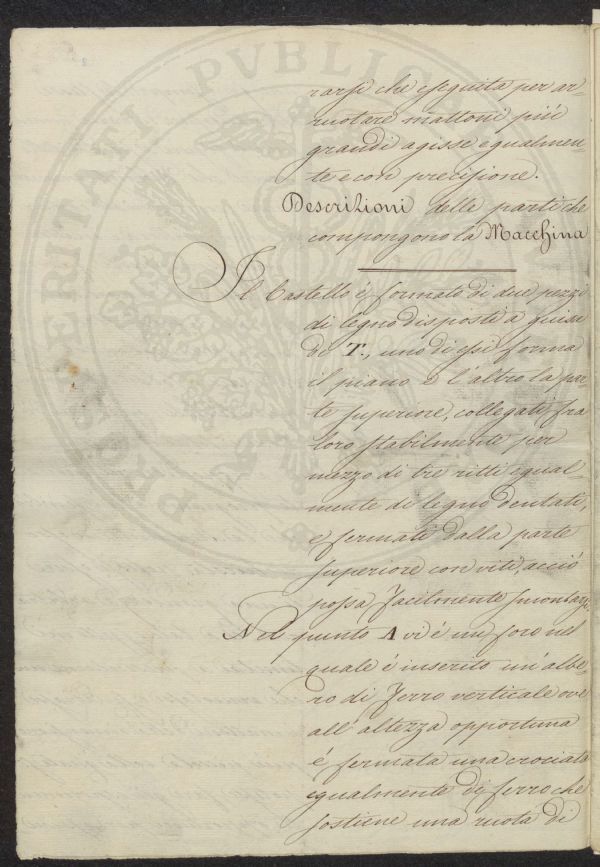 rarsi che eseguita per ar-
ruotare mattoni più
grandi agisse egualmen-
te e con precisione.
Descrizioni delle parti che
compongono la Macchina
Il Castello é formato di due pezzi
di legno disposti a guisa
di T., uno di essi forma
il piano e l'altro la par-
te superiore, collegati fra
loro stabilmente per
mezzo di tre ritti egual-
mente di legno dentati,
e fermati dalla parte
superiore con viti, acciò
possa facilmente smontarsi.
Nel punto A vi é un foro nel
quale é inserito un'albe-
ro di ferro verticale ove
all'altezza opportuna
é fermata una crociata
egualmente di ferro che
sostiene una ruota di
PVBLICAE
PROSPERITATI